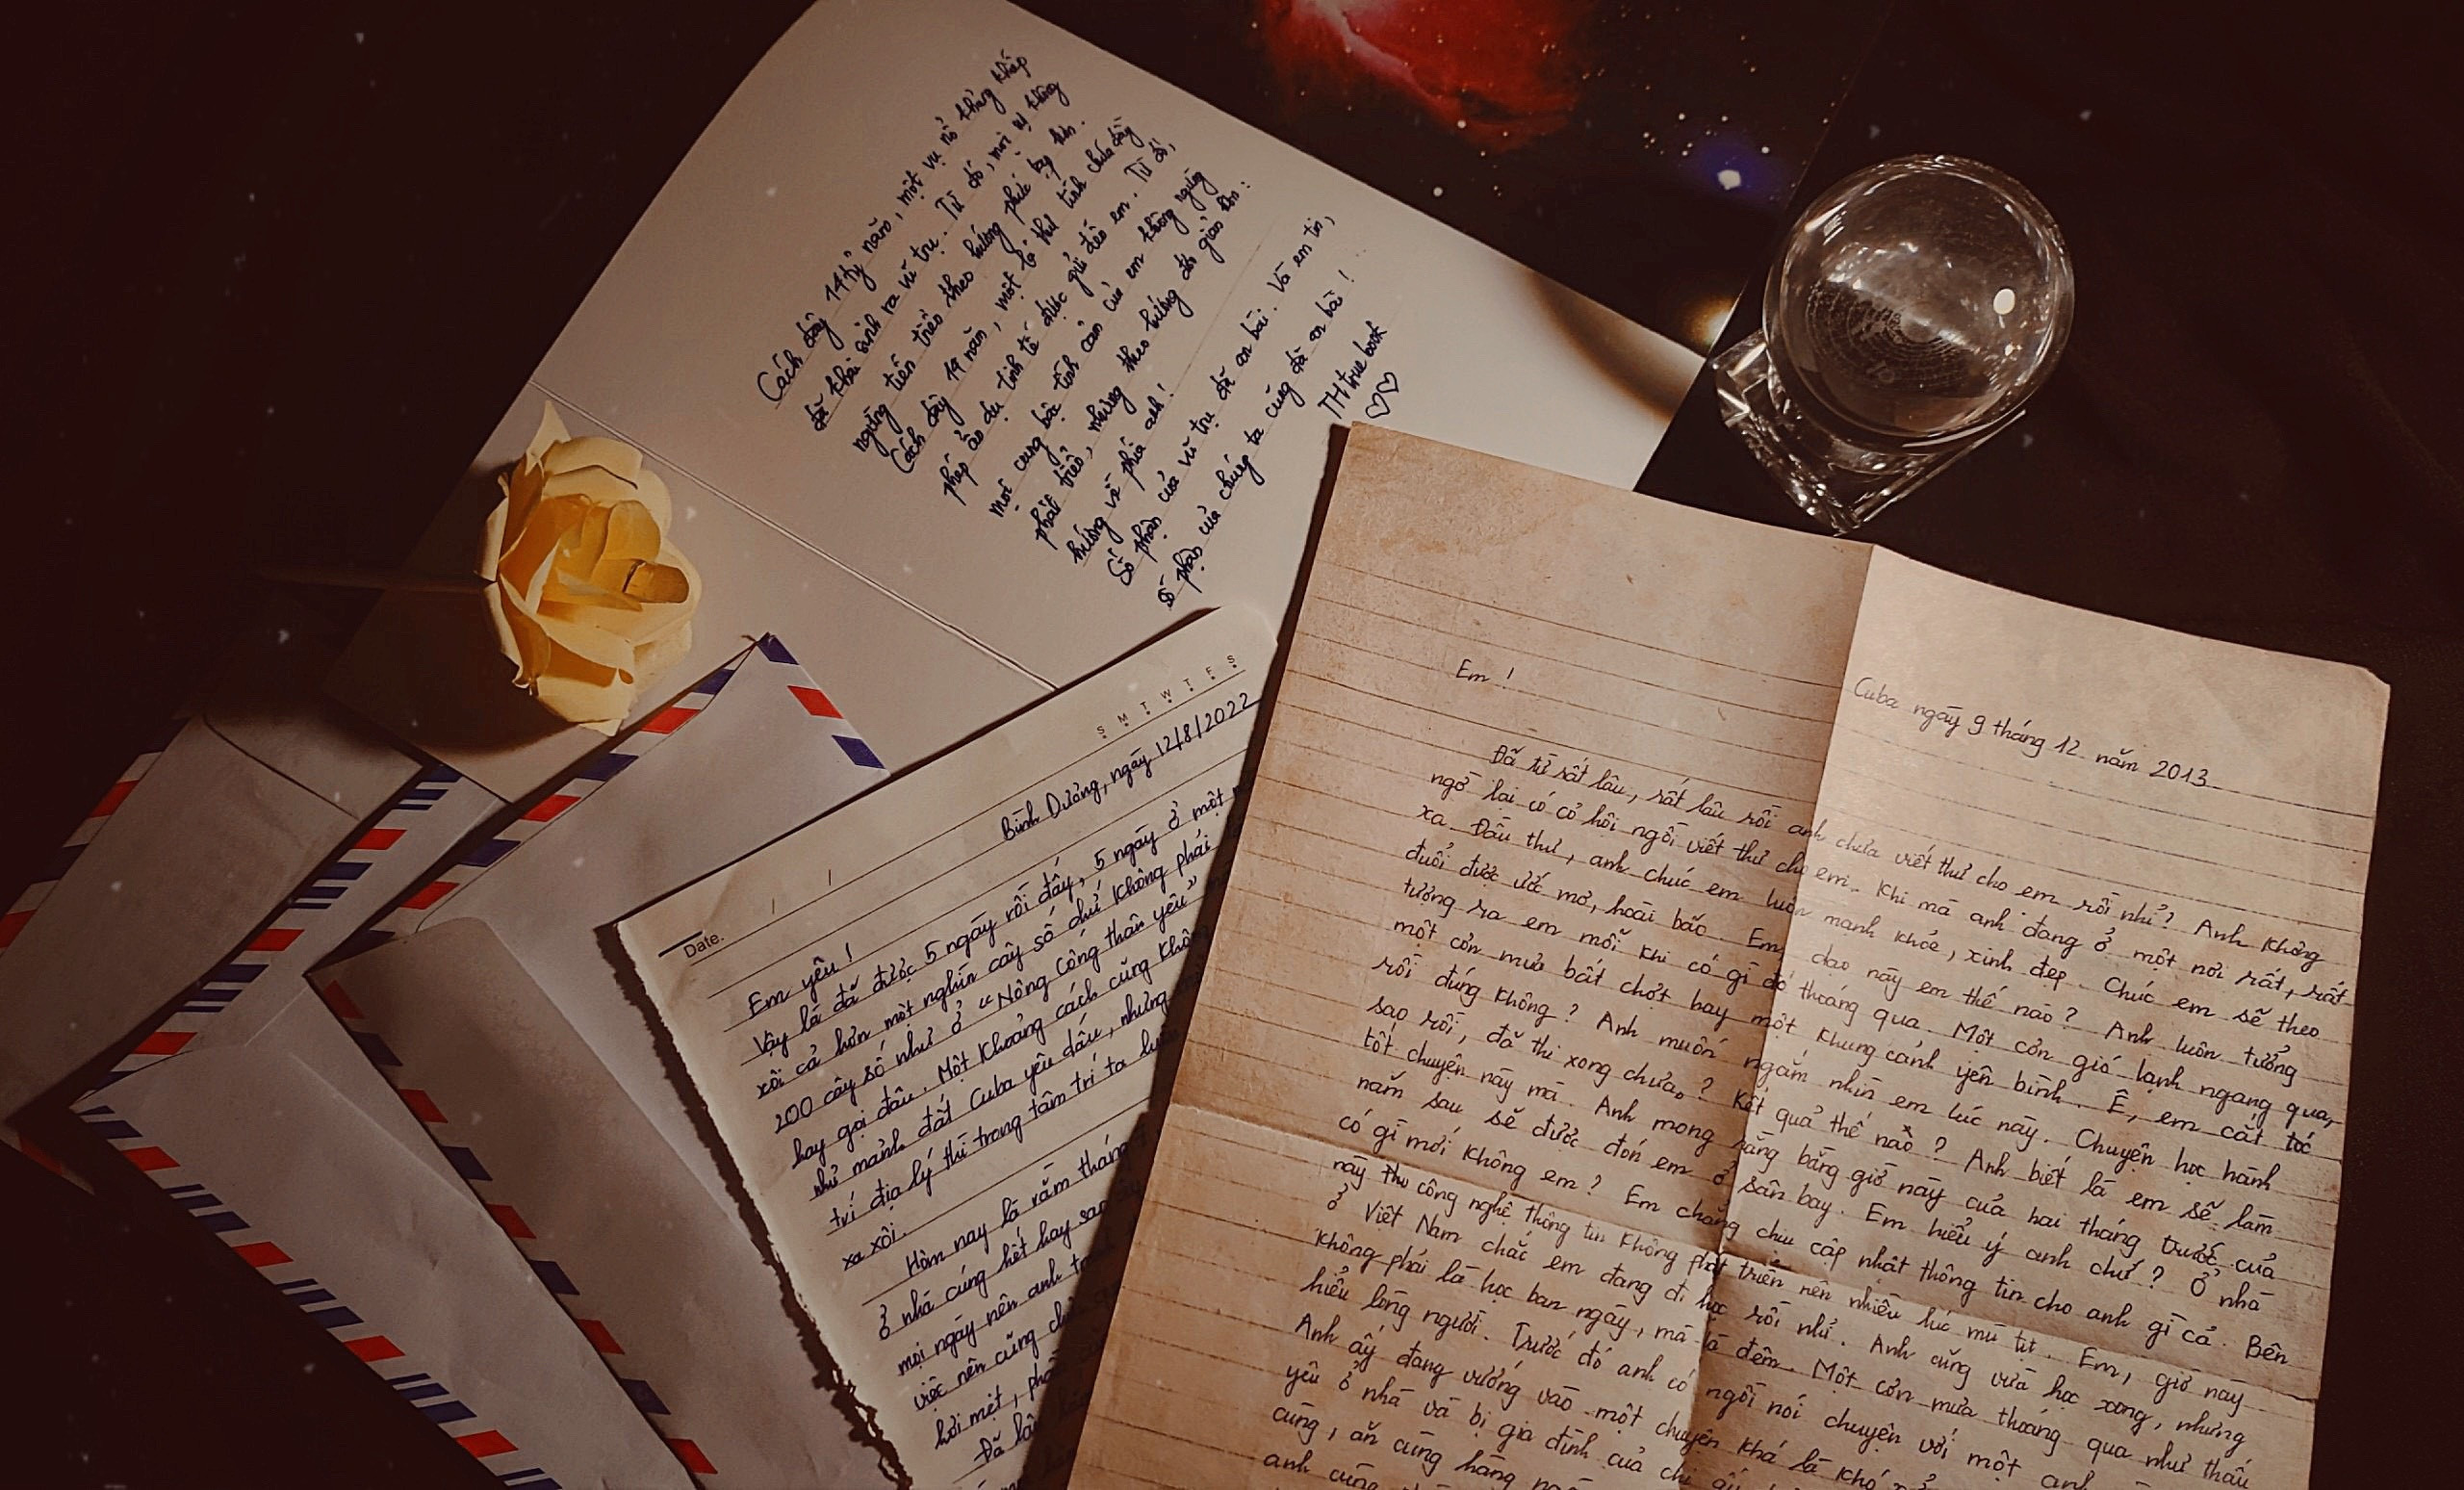 Cách đây 14 tỷ năm, một vụ nổ thảng khốp
đã thai sinh ra vũ trụ. Từ đó, mọi sự không
ngừng tiến triển theo hướng phức tạp hơn.
Cách đây 19 năm, một lá thư tình chứa đầy
phép ẩn dụ tinh tế được gửi đến em. Từ đó,
mọi cung bậc tình cảm của em không ngừng
phát triển, nhưng theo hướng đơn giản hơn:
hướng về phía anh!
Số phận của vũ trụ đã an bài. Và em tin,
số phận của chúng ta cũng đã an bài!
TH true book
S M T W T F S
Date.
Bình Dương, ngày 12/8/2022
Em yêu!
Vậy là đã được 5 ngày rồi đấy, 5 ngày ở một
xôi cả hơn một nghìn cây số chứ không phải
200 cây số như ở "Nông Cống thân yêu"
hay gọi đâu. Một khoảng cách cũng không
như mảnh đất Cuba yêu dấu, nhưng
trí địa lý thì trong tâm trí ta luôn
xa xôi.
Hôm nay là rằm tháng
ở nhà cúng hết hay sao
mọi ngày nên anh tranh
việc nên cũng
hơi mệt,
Đã lâu
Cuba ngày 9 tháng 12 năm 2013
Em!
Đã từ rất lâu, rất lâu rồi anh chưa viết thư cho em rồi nhỉ? Anh không
ngờ lại có cơ hội ngồi viết thư cho em. Khi mà anh đang ở một nơi rất, rất
xa. Đầu thư, anh chúc em luôn mạnh khỏe, xinh đẹp. Chúc em sẽ theo
đuổi được ước mơ, hoài bão. Em dạo này em thế nào? Anh luôn tưởng
tượng ra em mỗi khi có gì đó thoáng qua. Một cơn gió lạnh ngang qua,
một cơn mưa bất chợt hay một khung cảnh yên bình. Ê, em cắt tóc
rồi đúng không? Anh muốn ngắm nhìn em lúc này. Chuyện học hành
sao rồi, đã thi xong chưa? Kết quả thế nào? Anh biết là em sẽ làm
tốt chuyện này mà. Anh mong rằng bằng giờ này của hai tháng trước của
năm sau sẽ được đón em ở sân bay. Em hiểu ý anh chứ? Ở nhà
có gì mới không em? Em chẳng chịu cập nhật thông tin cho anh gì cả. Bên
này thu công nghệ thông tin không phát triển nên nhiều lúc mù tịt. Em, giờ này
ở Việt Nam chắc em đang đi học rồi nhỉ. Anh cũng vừa học xong, nhưng
không phải là học ban ngày, mà là đêm. Một cơn mưa thoáng qua như thấu
hiểu lòng người. Trước đó anh có ngồi nói chuyện với một anh
Anh ấy đang vướng vào một chuyện khá là khó
yêu ở nhà và bị gia đình của chị ấy
cùng, ăn cùng hàng
anh cũng